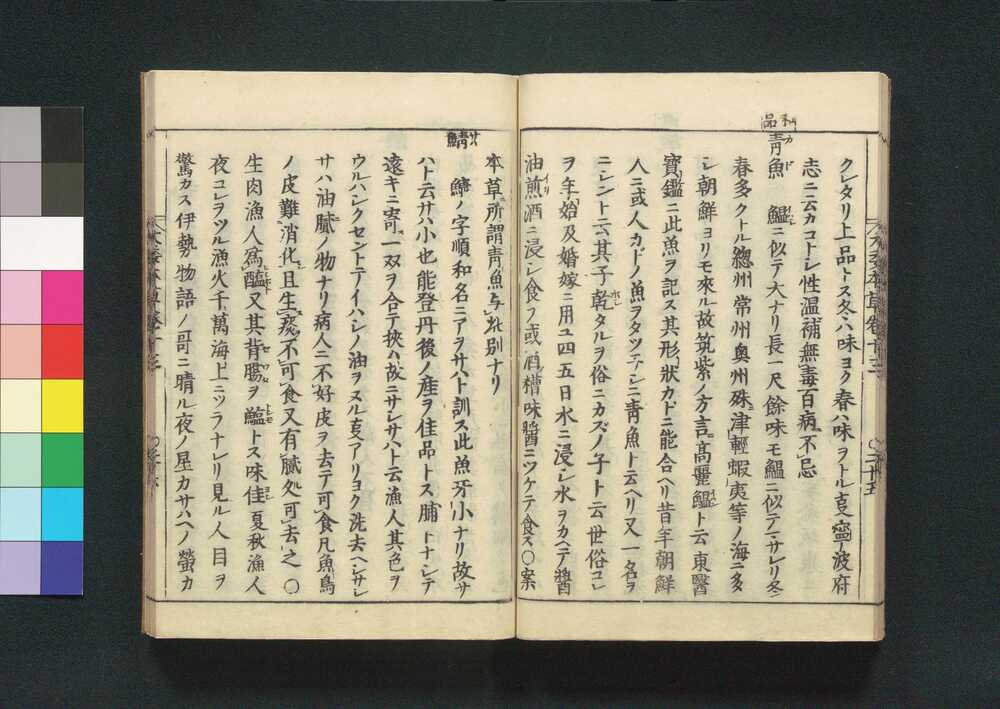 クレタリ上品トス冬ハ味ヨク春ハ味ヲトル𫝆寧波府
志ニ云カコトシ性温補無毒百病不忌
和品
青魚 鰮ニ似テ大ナリ長一尺餘味モ鰮ニ似テマサレリ冬
春多クトル總州常州奥州殊津輕蝦夷等ノ海ニ多
シ朝鮮ヨリモ來ル故筑紫ノ方言高麗鰮ト云東醫
寶鑑ニ此魚ヲ記ス其形狀カドニ能合ヘリ昔年朝鮮
人ニ或人カドノ魚ヲタツチシニ青魚ト云ヘリ又一名ヲ
ニシント云其子乾タルヲ俗ニカズノ子ト云世俗コレ
ヲ年始及婚嫁ニ用ユ四五日水ニ浸シ水ヲカヘテ醬
油煎酒ニ浸シ食フ或酒糟味醬ニツケテ食ス○案
本草所謂青魚与此別ナリ
鯖 鯖ノ字順和名ニアヲサハト訓ス此魚牙小ナリ故サ
ハト云サハ小也能登丹後ノ産ヲ佳品トス脯トナシテ
遠キニ寄一双ヲ合テ挾ハ故ニサシサハト云漁人其色ヲ
ウルハシクセントテイハシノ油ヲヌル𫝆アリヨク洗去ヘシサレ
サハ油膩ノ物ナリ病人ニ不好皮ヲ去テ可食凡魚鳥
ノ皮難消化且生痰不可食又有膩処可去之 ○
生肉漁人為醢又其背腸ヲ鱁トス味佳夏秋漁人
夜コレヲツル漁火千萬海上ニツラナレリ見ル人目ヲ
驚カス伊勢物語ノ哥ニ晴ル夜ノ星カサハヘノ螢カ
大和本草卷十三
二十五